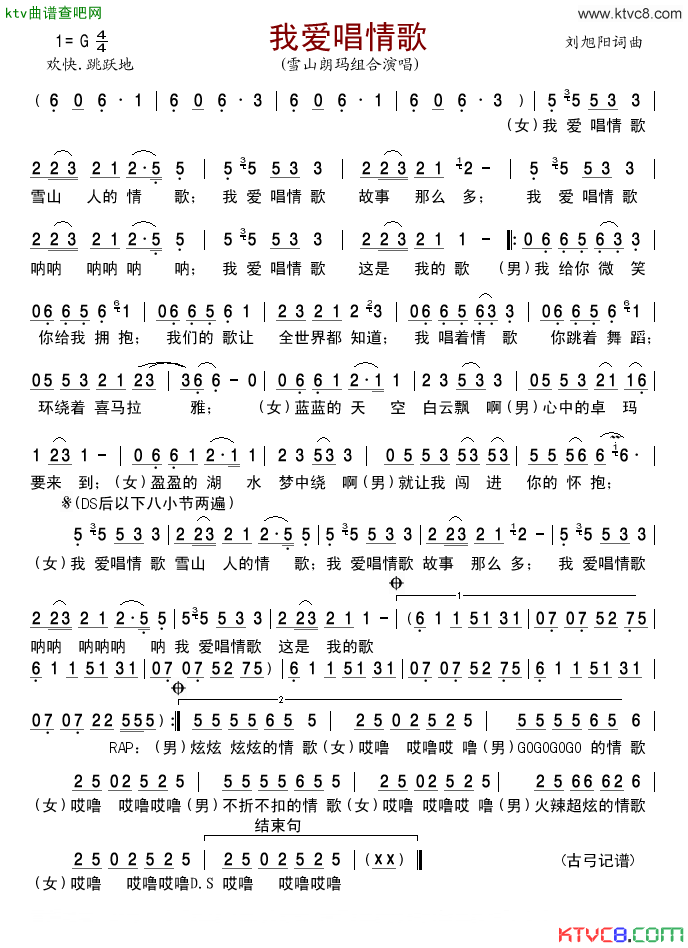 ktv曲谱查吧网
www.ktvc8.com
我爱唱情歌
1=G 4/4
刘旭阳词曲
欢快.跳跃地
(雪山朗玛组合演唱)
(6 0 6·1 | 6 0 6·3 | 6 0 6·1 | 6 0 6·3) | 5 3 5 5 3 3 |
(女)我 爱 唱情 歌
2 23 2 1 2·5 5 | 5 3 5 53 3 | 2 23 21 1 2 - | 5 3 5 53 3 |
雪山 人的 情 歌; 我 爱 唱情 歌 故事 那么 多; 我 爱 唱情歌
2 23 2 1 2·5 5 | 5 3 5 53 3 | 2 23 21 1 - |: 06 65 63 3 |
呐呐 呐呐 呐 呐; 我 爱 唱情 歌 这是 我的 歌 (男)我 给你 微 笑
06 65 6 1 | 06 65 6 1 | 23 21 2 2 | 06 65 63 3 | 53 53 2 3 |
你给我 拥 抱; 我们的 歌让 全世界都 知道; 我 唱着情 歌 你跳着 舞 蹈;
05 53 21 23 | 36 6 - 0 | 05 21 2·1 1 | 23 23 2 3 | 05 53 21 16 |
环绕着 喜马拉 雅; (女)蓝蓝的 天 空 白云飘 啊(男)心中的卓 玛
1 23 1 - | 06 61 2·1 1 | 23 23 2 3 | 05 53 5 5 | 55 56 6· |
要来 到;(女)盈盈的 湖 水 梦中绕 啊(男)就让我 闯 进 你的 怀 抱;
𝄋(DS后以下八小节两遍)
5 3 5 53 3 | 2 23 2 1 2·5 5 | 5 3 5 53 3 | 2 23 21 1 2 - | 5 3 5 53 3 |
(女)我 爱唱情 歌 雪山 人的情 歌;我 爱唱情歌 故事 那么 多; 我 爱唱情歌
1
2 23 21 2·5 5 | 5 3 5 53 3 | 2 23 21 1 - | (6 1 1 51 31 | 07 07 52 75 |
呐呐 呐呐呐 呐 我 爱唱情歌 这是 我的歌
6 1 1 51 31 | 07 07 52 75) | 6 1 1 51 31 | 07 07 52 75 | 6 1 1 51 31 |
2
07 07 22 555) :| 55 55 65 5 | 25 02 5 25 | 55 55 65 6 |
RAP: (男)炫炫 炫炫的情 歌(女)哎噜 哎噜哎 噜(男)GOGOGOGO 的情 歌
25 02 5 25 | 55 55 65 5 | 25 02 5 25 | 55 66 62 2 |
(女)哎噜 哎噜哎噜(男)不折不扣的情 歌(女)哎噜 哎噜哎 噜(男)火辣超炫的情歌
结束句
25 02 5 25 | 25 02 5 25 | (XX) |
(古弓记谱)
(女)哎噜 哎噜哎噜D.S 哎噜 哎噜哎噜
KTVC8.com